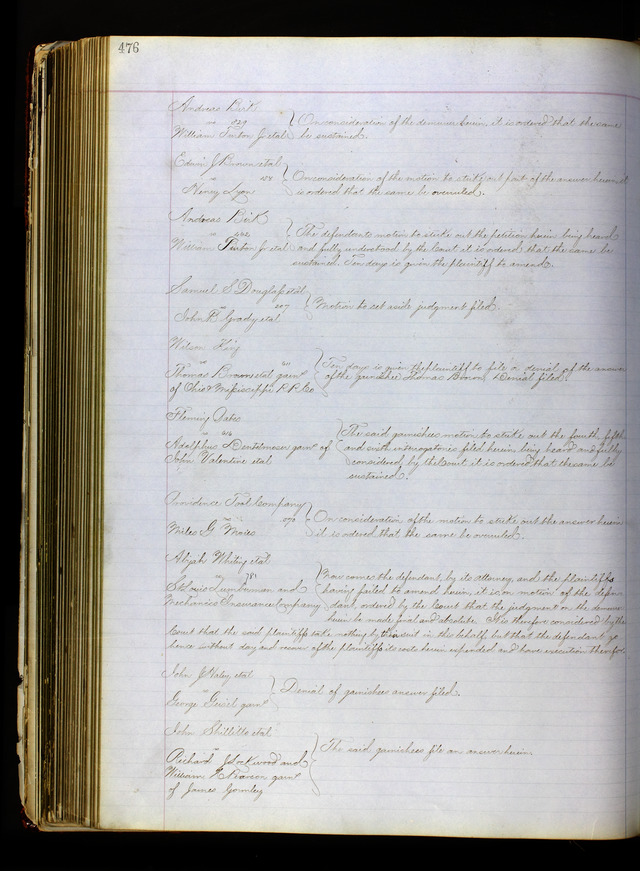 476
Andreas Birk
vs 929
William Tinton Jr etal
On consideration of the demurrer herein, it is ordered that the same
be sustained.
Edwin J Brown etal
vs 158
Henry Lyon
On consideration of the motion to strike out part of the answer herein, it
is ordered that the same be overruled.
Andreas Birk
vs
William Tinton Jr etal
The defendants motion to strike out the petition herein being heard
and fully understood by the Court it is ordered, that the same be
sustained. Ten days is given the plaintiff to amend.
Samuel S Douglass etal
vs 207
John B Grady etal
Motion to set aside judgment filed.
Wilson King
vs
Thomas Brown etal garne
of Ohio & Mississippi R. R. Co
Ten days is given the plaintiff to file a denial of the answer
of the garnishee Thomas Brown. Denial filed.
Fleming Oates
vs
Adolphus garne of
John Valentine etal
The said garnishees motion to strike out the fourth, fifth
and sixth interrogatories filed herein being heard and fully
considered by the Court it is ordered that the same be
sustained.
Providence Tool Company
vs
Miles G Moies
On consideration of the motion to strike out the answer herein
it is ordered that the same be overruled.
Abijah Whiting etal
vs 781
St Louis Lumberman and
Mechanics Insurance Company
Now comes the defendant, by its attorney, and the plaintiffs
having failed to amend herein, it is on motion of the defen-
dant, ordered by the Court that the judgment on the demurrer
herein be made final and absolute. It is therefore considered by the
Court that the said plaintiffs take nothing by their suit in this behalf but that the defendant go
hence without day and recover of the plaintiffs its costs herein expended and have execution therefor
John J etal
vs
George Geisel garne
Denial of garnishees answer filed.
John Shillito etal
vs
Richard J Lockwood and
William H Pearson garne
of James Gormley
The said garnishees file an answer herein.